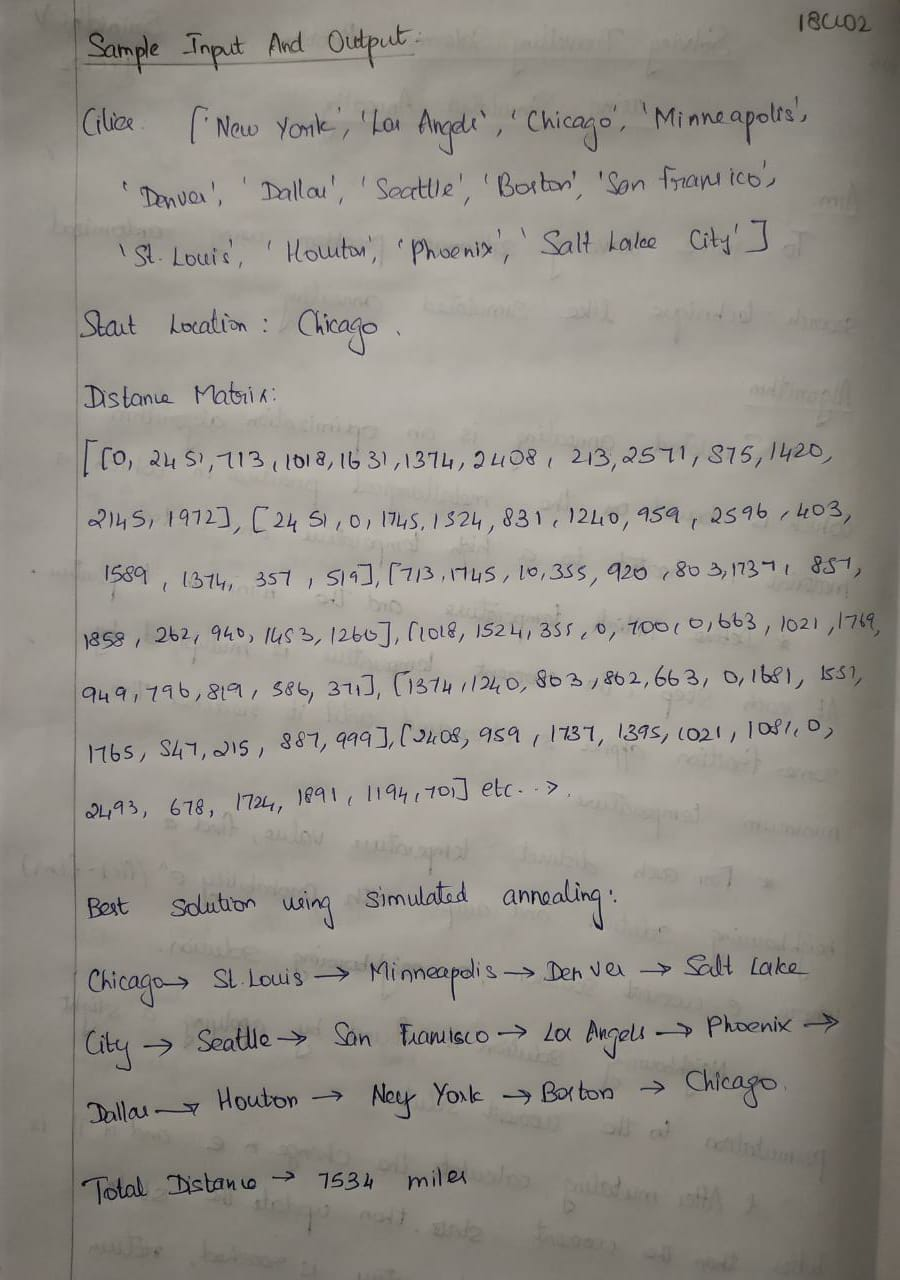 18CL02
Sample Input And Output:
Cities ['New York', 'Los Angels', 'Chicago', 'Minneapolis',
'Denver', 'Dallas', 'Seattle', 'Boston', 'San Fransico',
'St. Louis', 'Houston', 'Phoenix', 'Salt Lake City']
Start Location : Chicago.
Distance Matrix:
[[0, 2451, 713, 1018, 1631, 1374, 2408, 213, 2571, 875, 1420,
2145, 1972], [2451, 0, 1745, 1524, 831, 1240, 959, 2596, 403,
1589, 1374, 357, 519], [713, 1745, 10, 355, 920, 803, 1737, 851,
1858, 262, 940, 1453, 1260], [1018, 1524, 355, 0, 700, 0, 663, 1021, 1769,
949, 796, 819, 586, 371], [1374, 1240, 803, 862, 663, 0, 1681, 1551,
1765, 547, 215, 887, 999], [2408, 959, 1737, 1395, 1021, 1081, 0,
2493, 678, 1724, 1891, 1194, 701] etc...>.
Best solution using simulated annealing:
Chicago → St. Louis → Minneapolis → Denver → Salt Lake
City → Seattle → San Francisco → Los Angels → Phoenix →
Dallas → Houton → Ney York → Boston → Chicago.
Total Distance → 7534 miles